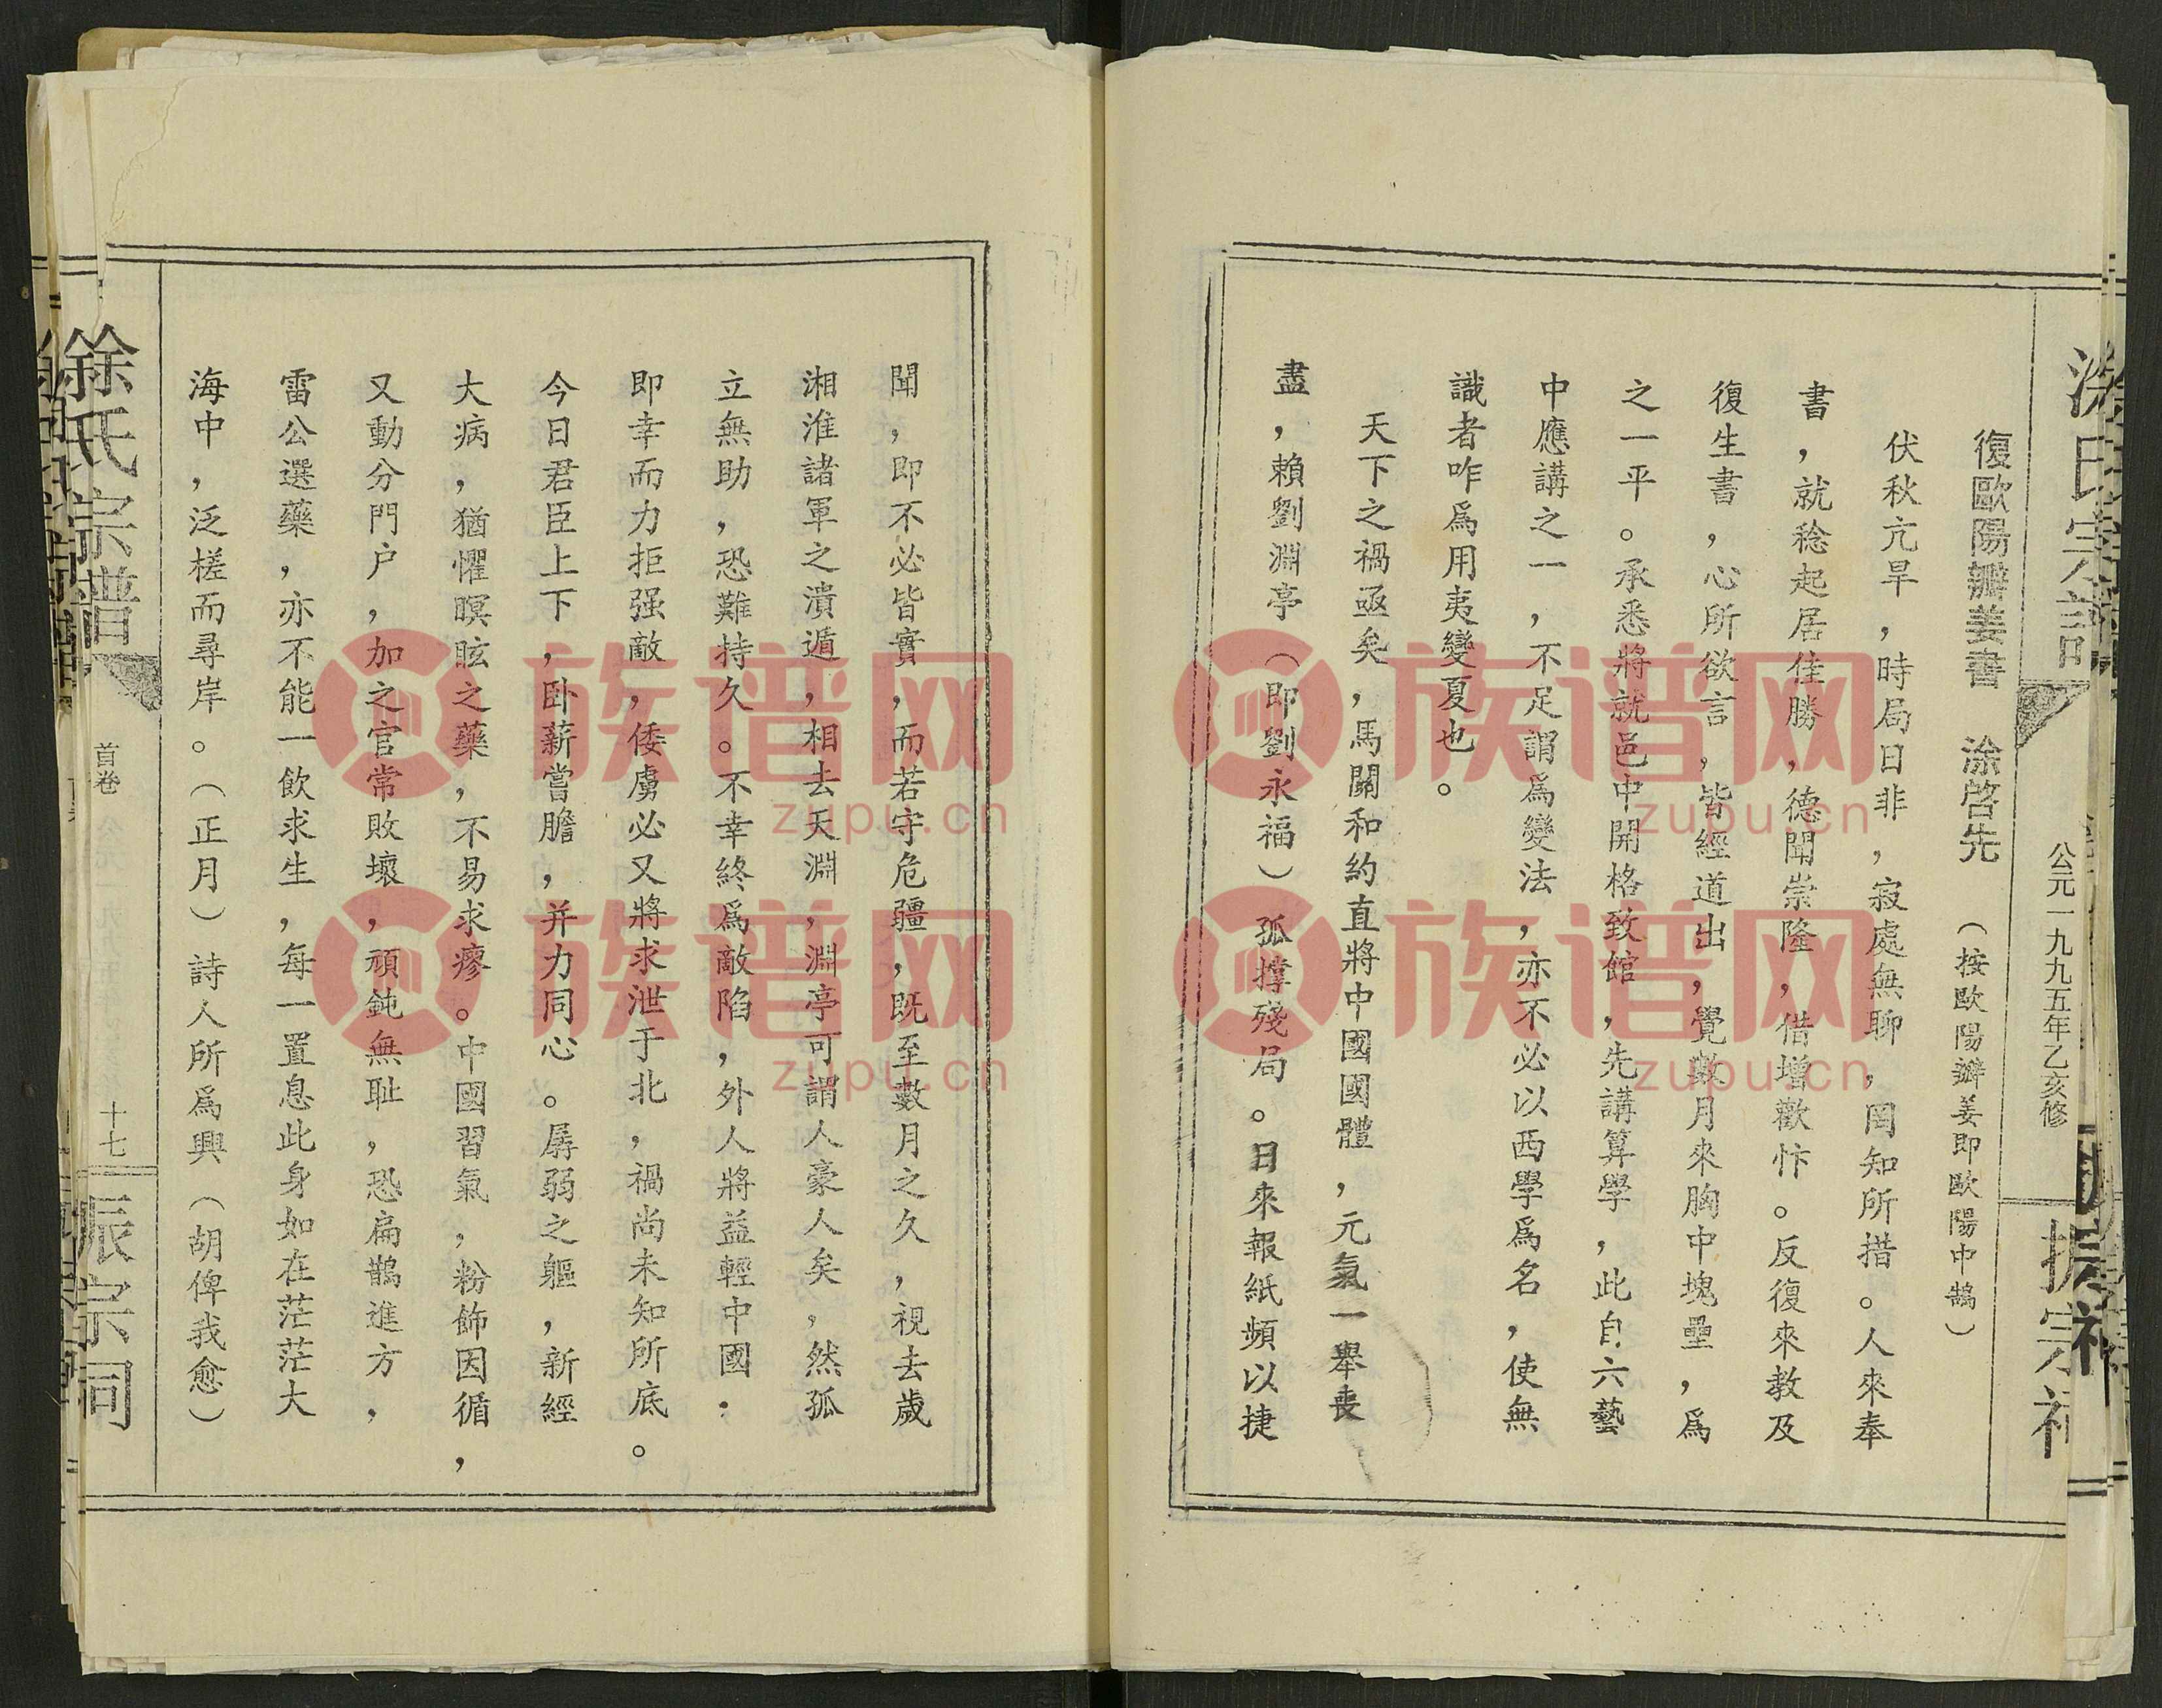 涂氏宗譜
公元一九九五年乙亥修
振宗祠
復歐陽瓣姜書　涂啓先　（按歐陽瓣姜即歐陽中鵠）
伏秋亢旱，時局日非，寂處無聊，罔知所措。人來奉
書，就稔起居佳勝，德聞崇隆，借增歡忭。反復來教及
復生書，心所欲言，皆經道出，覺數月來胸中塊壘，爲
之一平。承悉將就邑中開格致館，先講算學，此自六藝
中應講之一，不足謂爲變法，亦不必以西學爲名，使無
識者咋爲用夷變夏也。
天下之禍亟矣，馬關和約直將中國國體，元氣一舉喪
盡，賴劉淵亭（即劉永福）孤撐殘局。日來報紙頻以捷
聞，即不必皆實，而若守危疆，既至數月之久，視去歲
湘淮諸軍之潰遁，相去天淵，淵亭可謂人豪人矣，然孤
立無助，恐難持久。不幸終爲敵陷，外人將益輕中國；
即幸而力拒强敵，倭虜必又將求泄于北，禍尚未知所底。
今日君臣上下，卧薪嘗膽，并力同心。孱弱之軀，新經
大病，猶懼暝眩之藥，不易求瘳。中國習氣，粉飾因循，
又動分門户，加之官常敗壞，頑鈍無耻，恐扁鵲進方，
雷公選藥，亦不能一飲求生，每一置息此身如在茫茫大
海中，泛槎而尋岸。（正月）詩人所爲興（胡俾我愈）
涂氏宗譜
首卷
十七
振宗祠
族谱网
zupu.cn
族谱网
zupu.cn
族谱网
zupu.cn
族谱网
zupu.cn